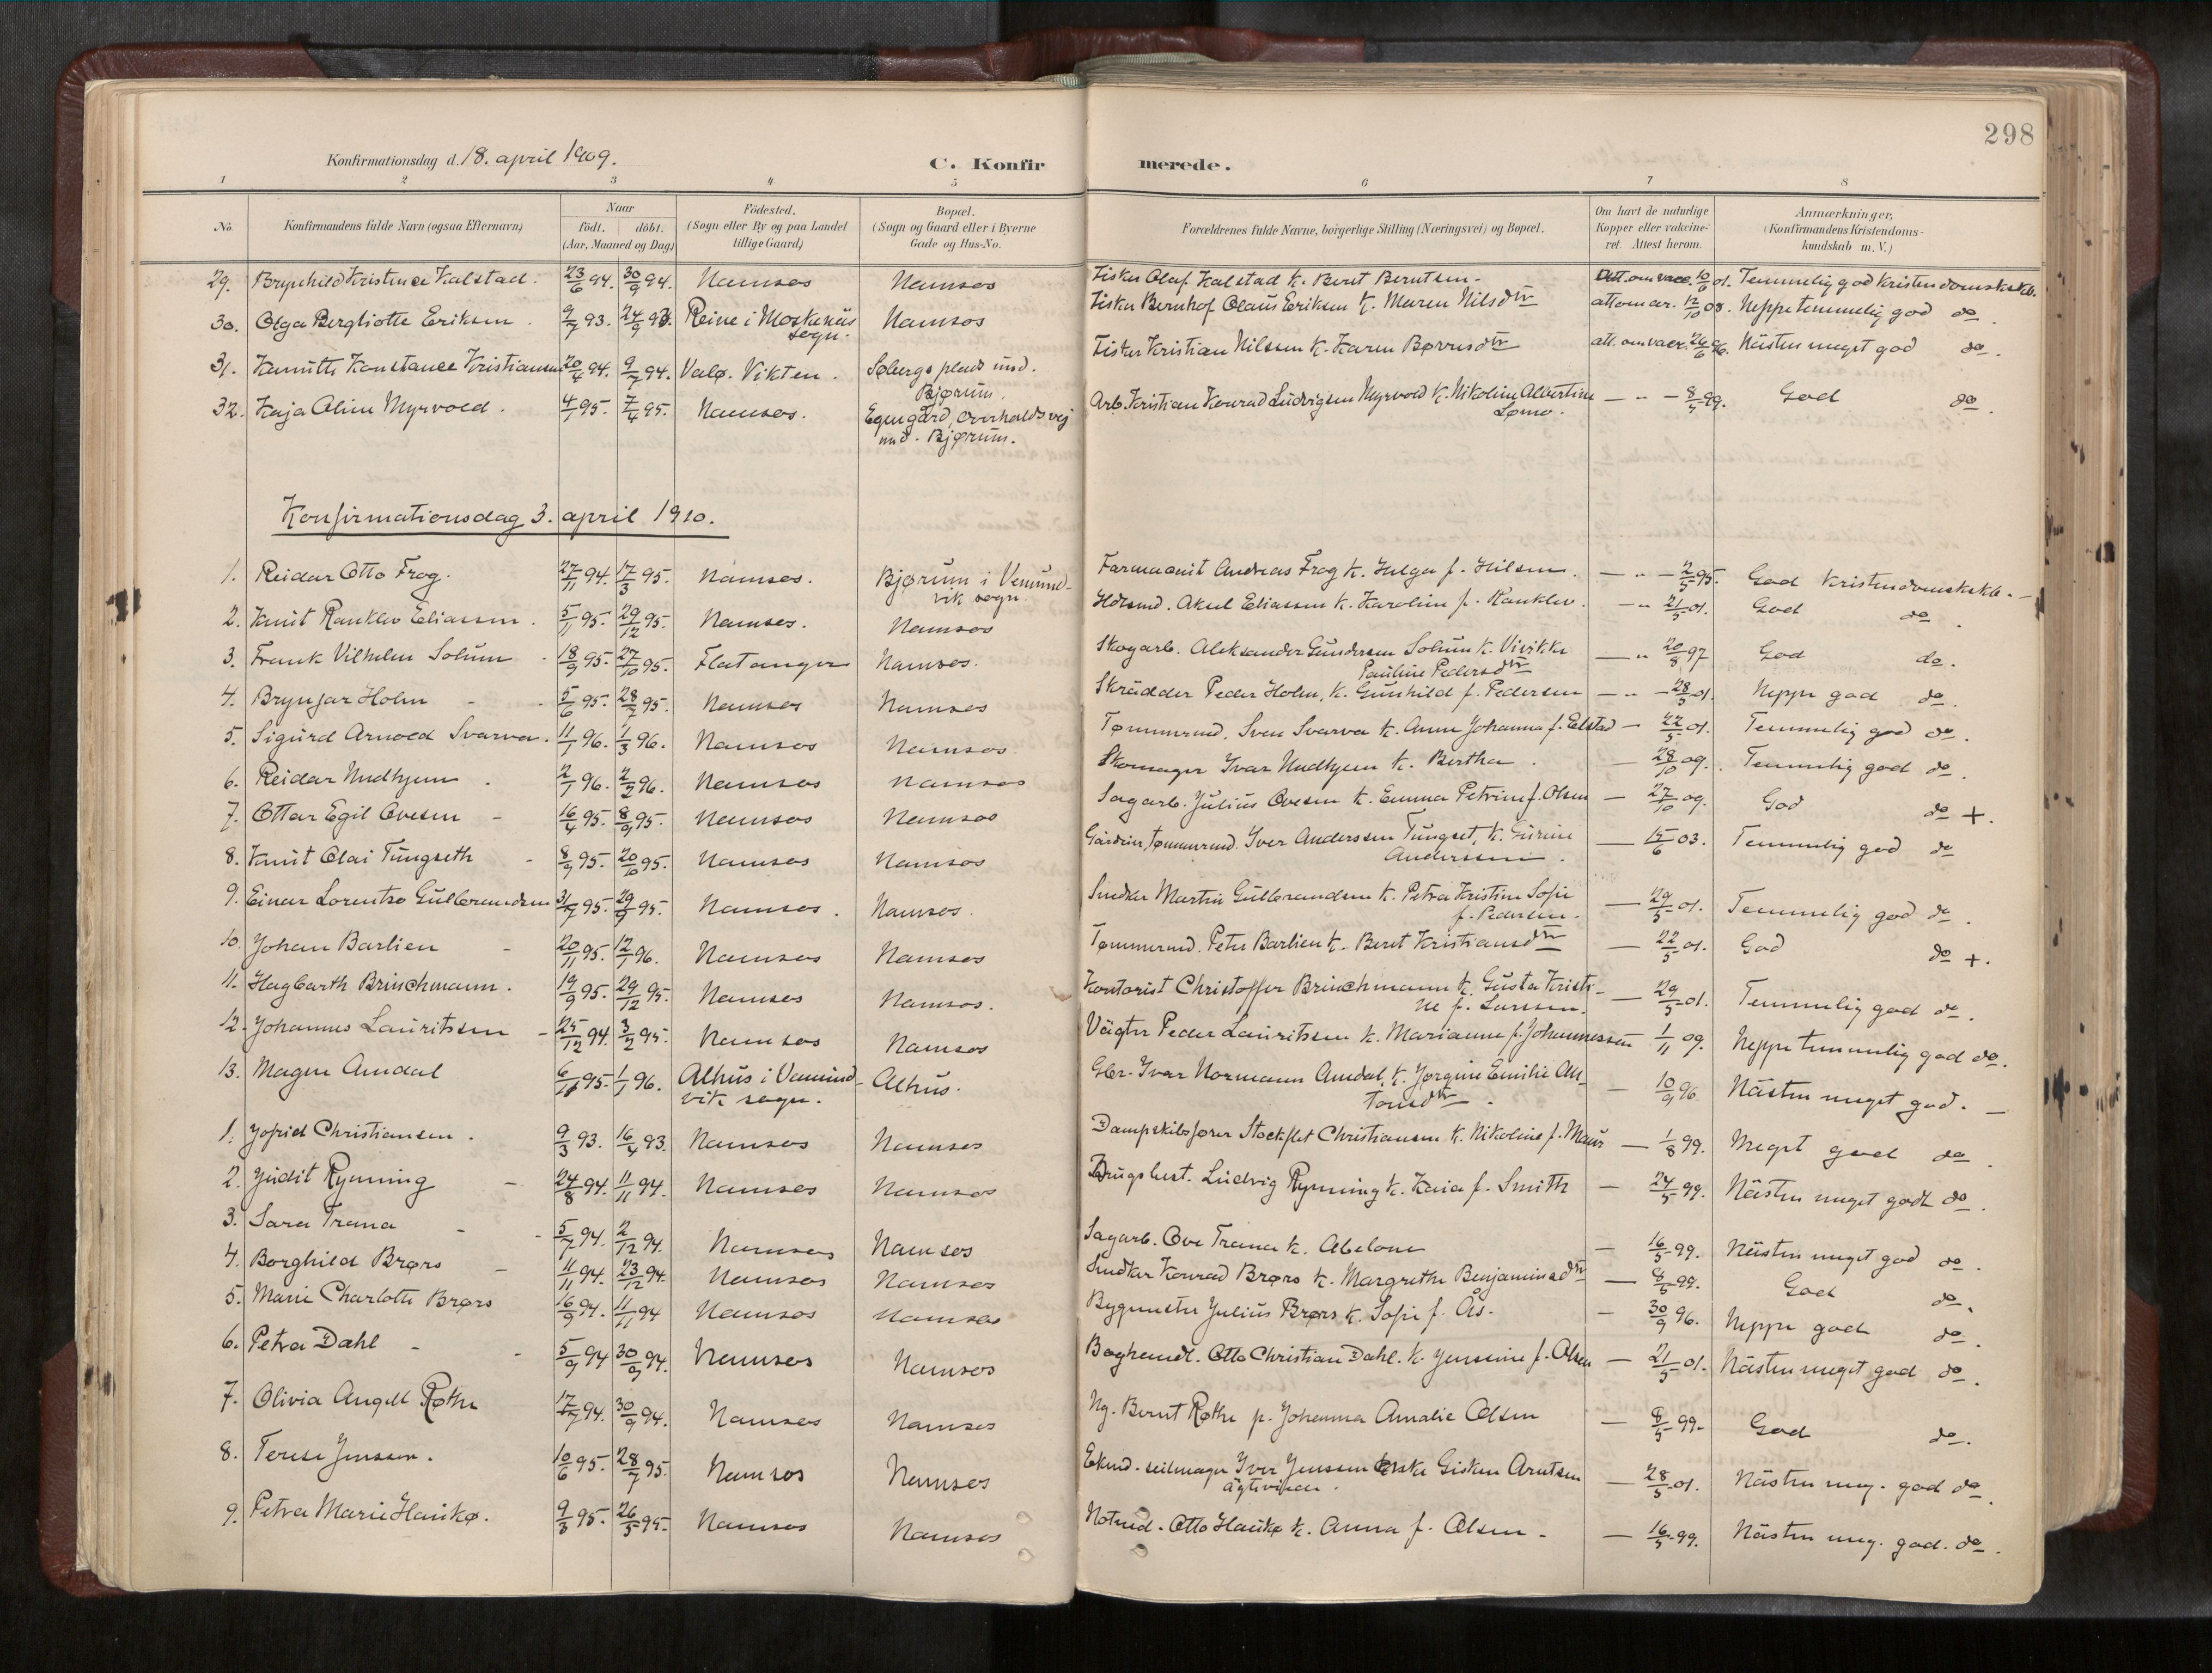 298
Konfirmationsdag d. 18. april 1909.
C. Konfirmerede.
1 2 3 4 5 6 7 8
No. Konfirmandens fulde Navn (ogsaa Efternavn) Naar født. døbt. (Aar, Maaned og Dag) Födested. (Sogn eller By og paa Landet tillige Gaard) Bopæl. (Sogn og Gaard eller i Byerne Gade og Hus-No. Forældrenes fulde Navne, borgerlige Stilling (Næringsvei) og Bopæl. Om havt de naturlige Kopper eller vakcineret. Attest herom. Anmærkninger, (Konfirmandens Kristendomskundskab m. V.)
29. Brynhild Kristence Kalstad. 23/6 94. 30/9 94. Namsos Namsos Fisker Olaf Kalstad k. Beret Berntsen. Att. om vacc. 10/6 01. Temmelig god Kristendomskskb.
30. Olga Bergliotte Eriksen. 9/7 93. 24/9 93. Reine i Moskenäs Namsos Fisker Bernhof Olaus Eriksen k. Maren Nilsdtr 12/10 08. Neppe temmelig god do.
sogn.
31. Konstance Kristiansen 20/4 94. 9/7 94. Valø. Vikten. Søbergs plads und. Fisker Kristian Nilssen k. Karen Børresdtr att. om vacc. 26/6 96. Nästen meget god do.
Bjørum.
32. Kaja Oline Myrvold. 4/1 95. 7/4 95. Namsos. Overhaldsvej Arb. Kristian Konrad Ludvigsen Myrvold k. Nikoline Albertine — " — 8/5 99. God do.
und. Bjørum. Lømo.
Konfirmationsdag 3. april 1910.
1. Reidar Otto Frog. 27/11 94. 17/3 95. Namsos. Bjørum i Vemund- Farmaceut Andreas Frog k. Helga f. Nilsen. — " — 2/5 95. God Kristendomskskb.
vik sogn.
2. Knut Ranklev Eliassen. 5/11 95. 29/12 95. Namsos. Namsos Hdlsmd. Aksel Eliassen k. Karoline f. Ranklev. — " 21/5 01. God do.
3. Frank Vilhelm Solum 18/9 95. 27/10 95. Flatanger Namsos. Skogarb. Aleksander Gundersen Solum k. Vivikke — " 20/8 97 God do.
Pauline Pedersdtr
4. Brynjar Holm 5/6 95. 28/7 95. Namsos Namsos Skrädder Peder Holm, k. Gunhild f. Pedersen — " — 28/5 01. Neppe god do.
5. Sigurd Arnold Svarva. 11/1 96. 1/3 96. Namsos Namsos. Tømmermd. Sven Svarva k. Anne Johanna f. Elstad — 22/5 01. Temmelig god do.
6. Reidar Nudhjem. 2/1 96. 2/2 96. Namsos Namsos Skomager Ivar Nudhjem k. Bertha. — 28/10 09. Temmelig god do.
7. Ottar Egil Ovesen 16/4 95. 8/9 95. Namsos Namsos Sagarb. Julius Ovesen k. Emma Petrine f. Olsen — 27/10 09. God do +.
8. Knut Olai Tungseth 8/9 95. 20/10 95. Namsos Namsos Iver Anderssen Tungset, k. Gurine — 15/6 03. Temmelig god do
Anderssen.
9. Einar Lorentze Gulbrandsen 31/7 95. 29/9 95. Namsos. Namsos. Smeder Martin Gulbrandsen k. Petra Kristine Sofie — 29/5 01. Temmelig god do.
f. Pedersen.
10. Johan Barlien 20/11 95. 12/1 96. Namsos Namsos Tømmermd. Peter Barlien k. Beret Kristiansdtr — 22/5 01. God do +.
11. Hagbarth Brinchmann. 19/9 95. 29/12 95. Namsos Namsos. Kontorist Christoffer Brinchmann k. Gusta Kristi- — 29/5 01. Temmelig god do.
ne f. Larsen.
12. Johannes Lauritssen 25/12 94. 3/2 95. Namsos Namsos Vägter Peder Lauritssen k. Marianne f. Johannessen 1/11 09. Neppe temmelig god do.
13. Magne Amdal 6/11 95. 1/1 96. Alhus i Vemund- Alhus. Gbr. Ivar Normann Amdal, k. Jørgine Emilie An- — 10/9 96 Nästen meget god. —
vik sogn. tonsdtr.
1. Jofrid Christiansen. 9/3 93. 16/4 93. Namsos Namsos Dampskibsfører Stockflet Christiansen k. Nikoline f. Maur — 1/8 99. Meget god do.
2. Judit Rynning 24/8 94. 11/11 94. Namsos Namsos Brugsbest. Ludvig Rynning k. Kaia f. Smith — 24/5 99. Nästen meget godt do.
3. Sara Trana 5/7 94. 2/12 94. Namsos Namsos Sagarb. Ove Trana k. Abelone — 16/5 99. Nästen meget god do.
4. Borghild Brørs 11/11 94. 23/12 94. Namsos Namsos Snedker Konrad Brørs k. Margrethe Benjaminsdtr — 8/5 99. God do.
5. Marie Charlotte Brørs 16/9 94. 11/11 94 Namsos Namsos Bygmester Julius Brørs k. Sofie f. Ås. — 30/9 96. Neppe god do.
6. Petra Dahl 5/9 94 30/9 94. Namsos Namsos Boghandl. Otto Christian Dahl. k. Jensine f. Olsen — 21/5 01. Nästen meget god do.
7. Olivia Angell Røthe 17/7 94. 30/9 94. Namsos Namsos Ng. Bernt Røthe p. Johanna Amalie Olsen — 8/5 99. God do.
8. Terese Jenssen. 10/6 95. 28/7 95. Namsos Namsos seilmager Iver Jenssen Gisken Arntsen — 28/5 01. Nästen meg. god do.
9. Petra Marie Haukø. 9/3 95. 26/5 95. Namsos Namsos Notmd. Otto Haukø k. Anna f. Olsen. — 16/5 99. Nästen meg. god. do.